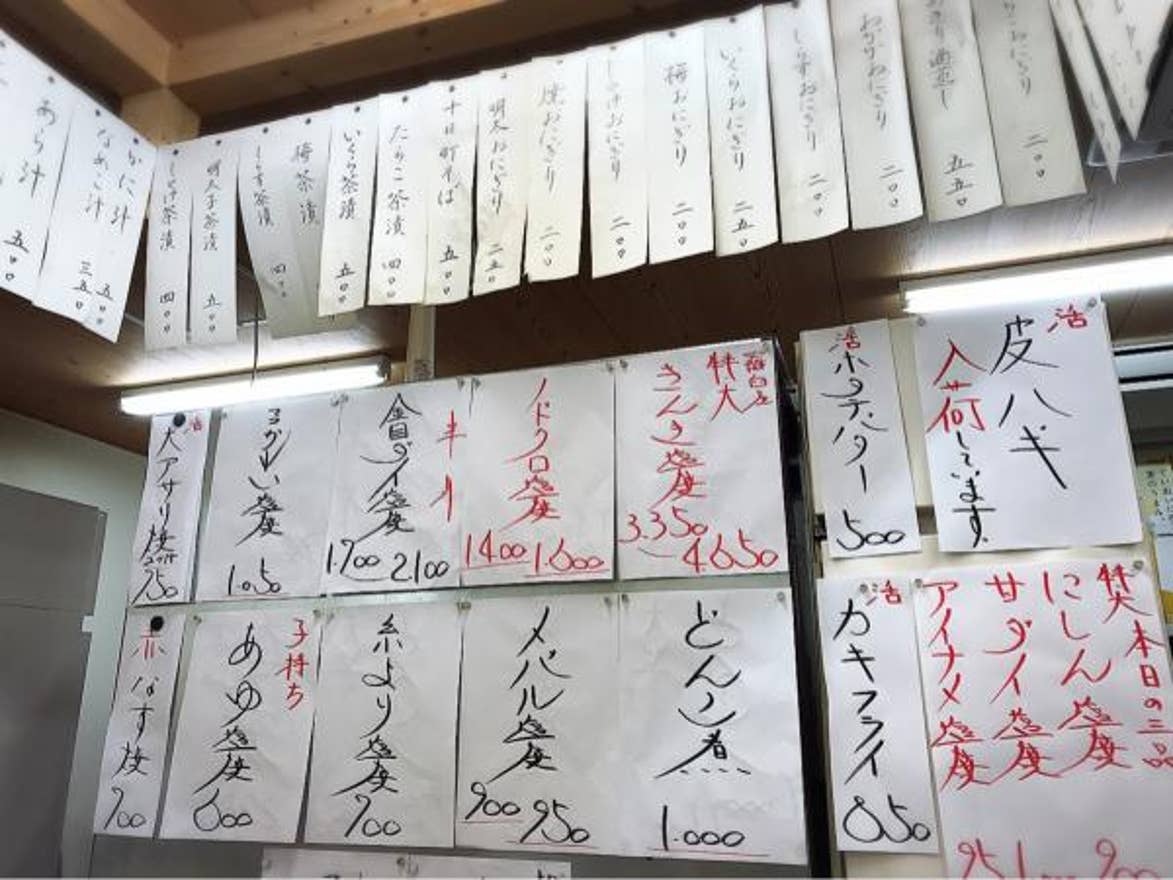 あら汁 五〇〇
なめこ汁 三五〇
かに汁 五〇〇
しらす茶漬 四〇〇
明太子茶漬 五〇〇
梅茶漬
いくら茶漬 五〇〇
たらこ茶漬 四〇〇
十日町そば 五〇〇
明太おにぎり 二五〇
焼おにぎり 二〇〇
しゃけおにぎり 二〇〇
梅おにぎり 二〇〇
いくらおにぎり 二五〇
しらすおにぎり 二〇〇
おかかおにぎり 二〇〇
あさり酒蒸し 五五〇
おにぎり 二〇〇
活
大アサリ焼
750
塩焼
1.050
半身
金目ダイ塩焼
1.700 2.100
ノドクロ塩焼
1400 1.600
特大
さんま塩焼
3.350 4650
活ホタテバター
500
活
皮ハギ
入荷しています
赤なす焼
700
子持ち
あゆ塩焼
600
糸より塩焼
700
メバル塩焼
900 950
どんこ煮
1.000
活
カキフライ
850
本日の三品
特大
にしん塩焼
甘ダイ塩焼
アイナメ塩焼